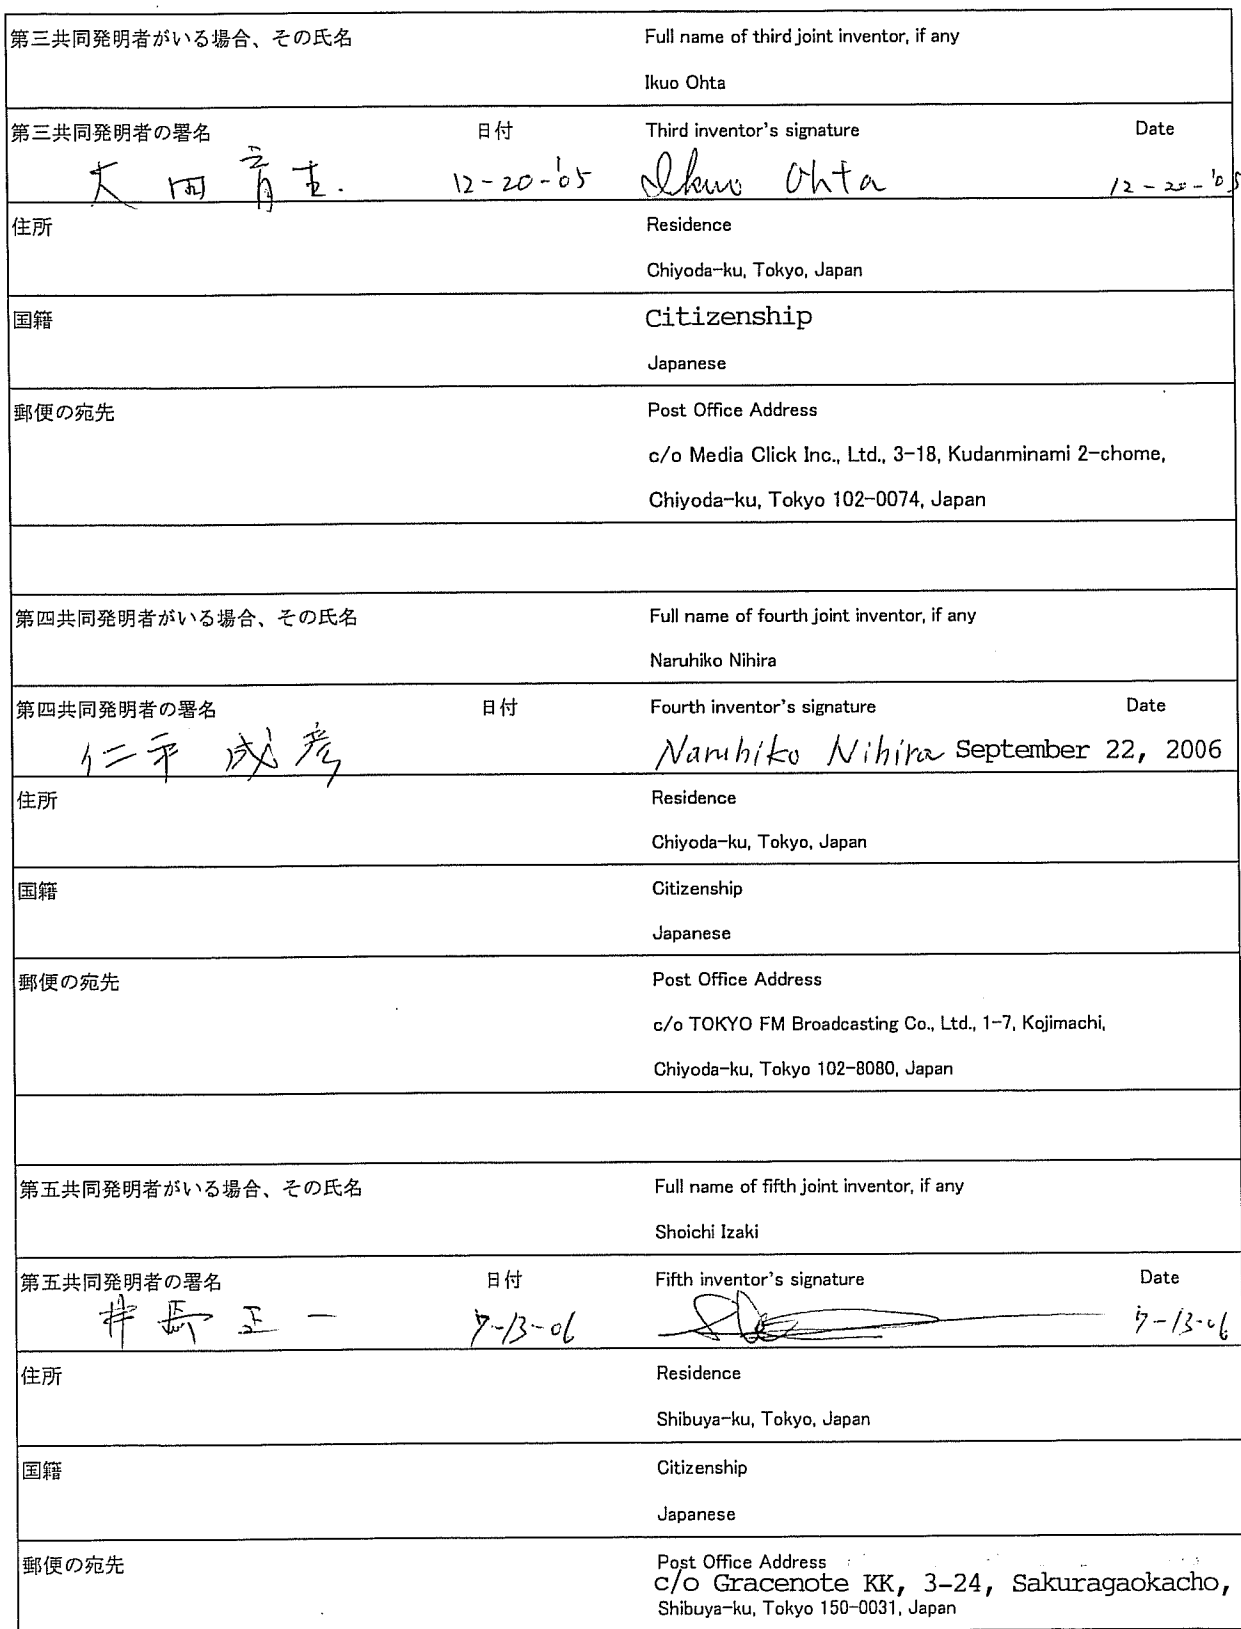 第三共同発明者がいる場合、その氏名 Full name of third joint inventor, if any
Ikuo Ohta
第三共同発明者の署名 日付 Third inventor's signature Date
太田育生. 12-20-'05 Ikuo Ohta 12-20-'05
住所 Residence
Chiyoda-ku, Tokyo, Japan
国籍 Citizenship
Japanese
郵便の宛先 Post Office Address
c/o Media Click Inc., Ltd., 3-18, Kudanminami 2-chome,
Chiyoda-ku, Tokyo 102-0074, Japan
第四共同発明者がいる場合、その氏名 Full name of fourth joint inventor, if any
Naruhiko Nihira
第四共同発明者の署名 日付 Fourth inventor's signature Date
仁平 成彦 Naruhiko Nihira September 22, 2006
住所 Residence
Chiyoda-ku, Tokyo, Japan
国籍 Citizenship
Japanese
郵便の宛先 Post Office Address
c/o TOKYO FM Broadcasting Co., Ltd., 1-7, Kojimachi,
Chiyoda-ku, Tokyo 102-8080, Japan
第五共同発明者がいる場合、その氏名 Full name of fifth joint inventor, if any
Shoichi Izaki
第五共同発明者の署名 日付 Fifth inventor's signature Date
正一 7-13-06 7-13-06
住所 Residence
Shibuya-ku, Tokyo, Japan
国籍 Citizenship
Japanese
郵便の宛先 Post Office Address
c/o Gracenote KK, 3-24, Sakuragaokacho,
Shibuya-ku, Tokyo 150-0031, Japan